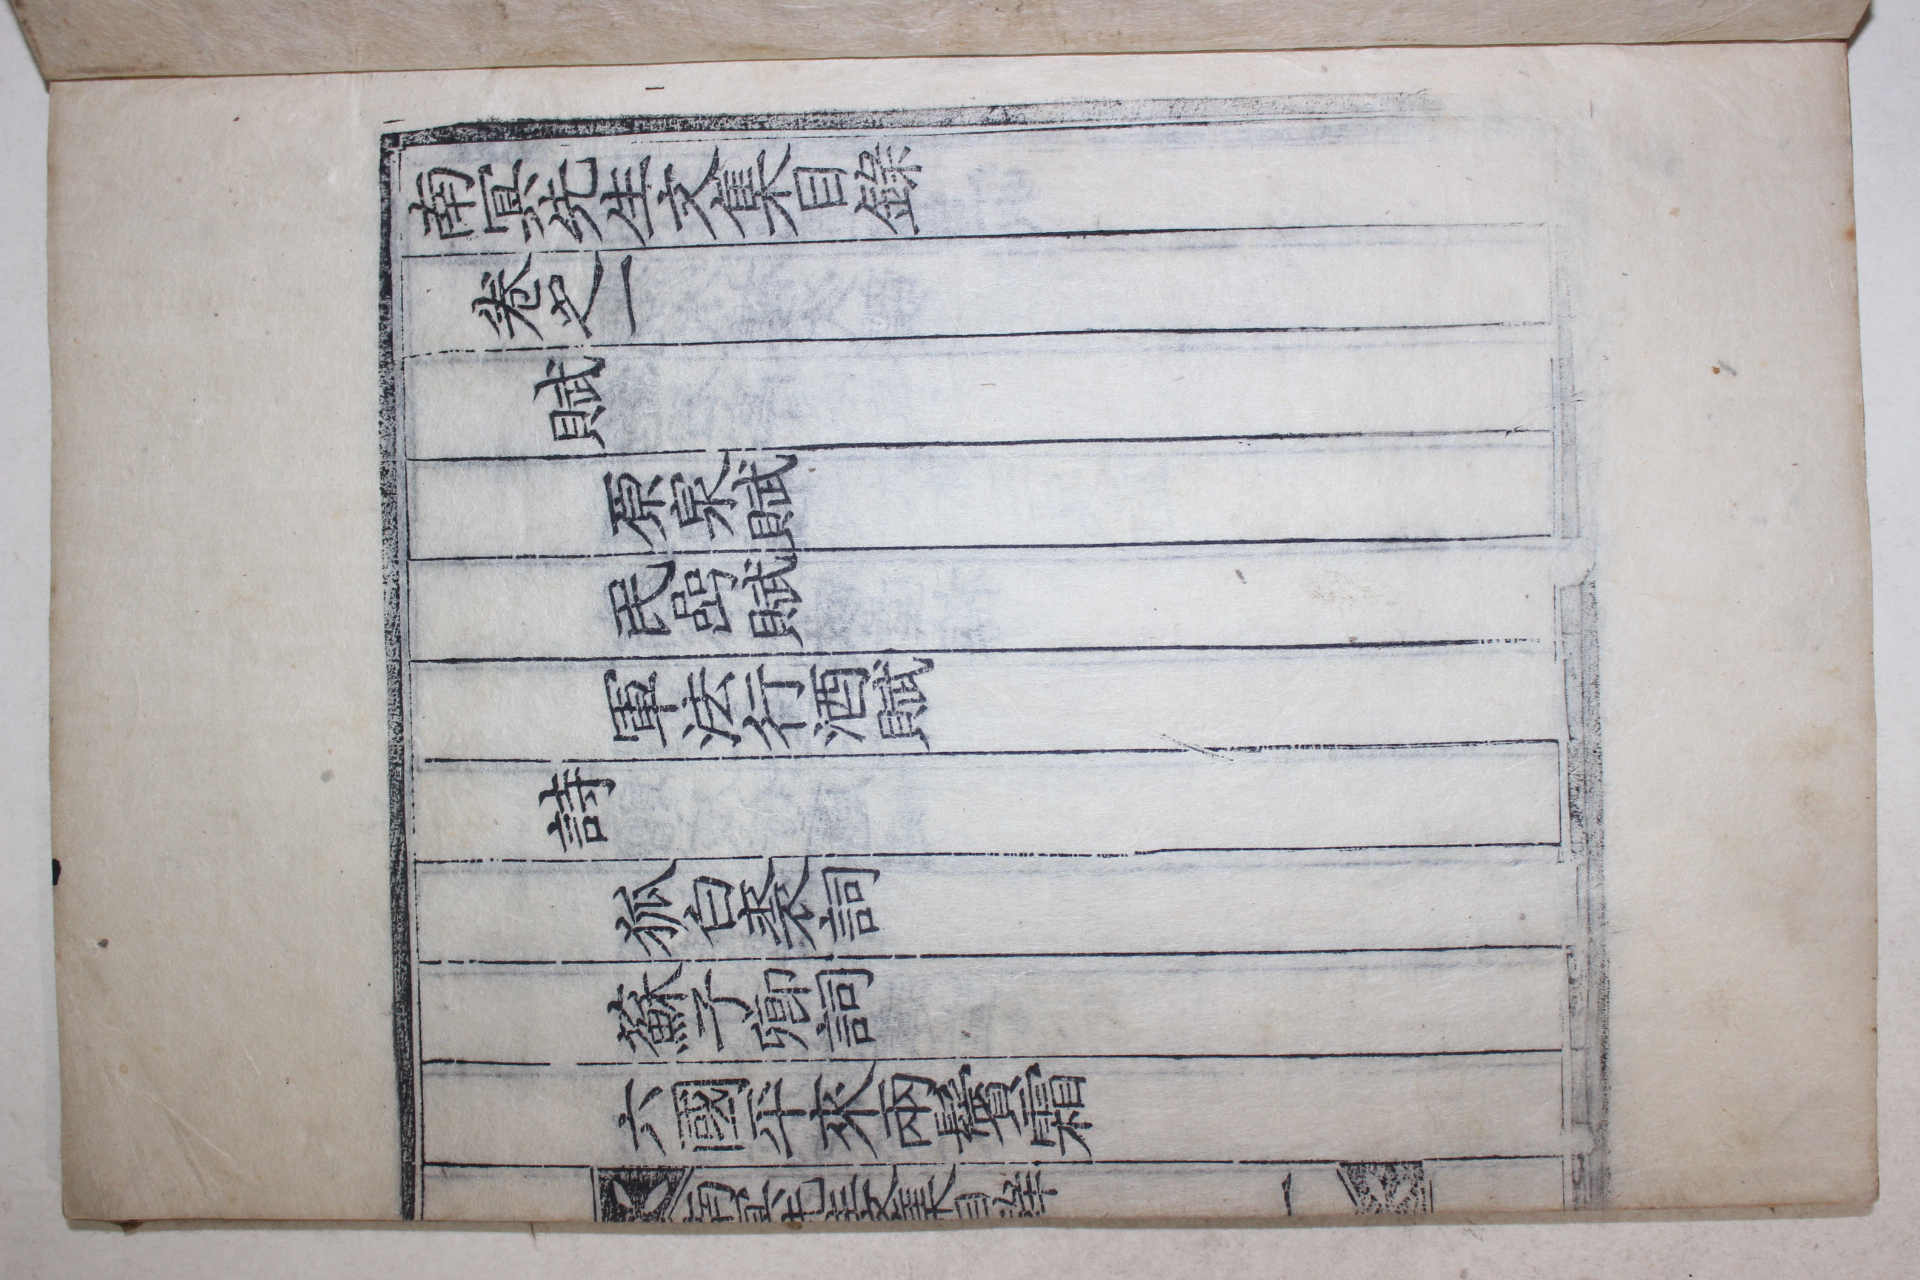 南冥先生文集目錄
卷之一
賦
原泉賦
民嵒賦
軍法行酒賦
詩
狐白裘詞
蘇子卿詞
六國平來兩鬢霜
南冥先生文集目錄 一